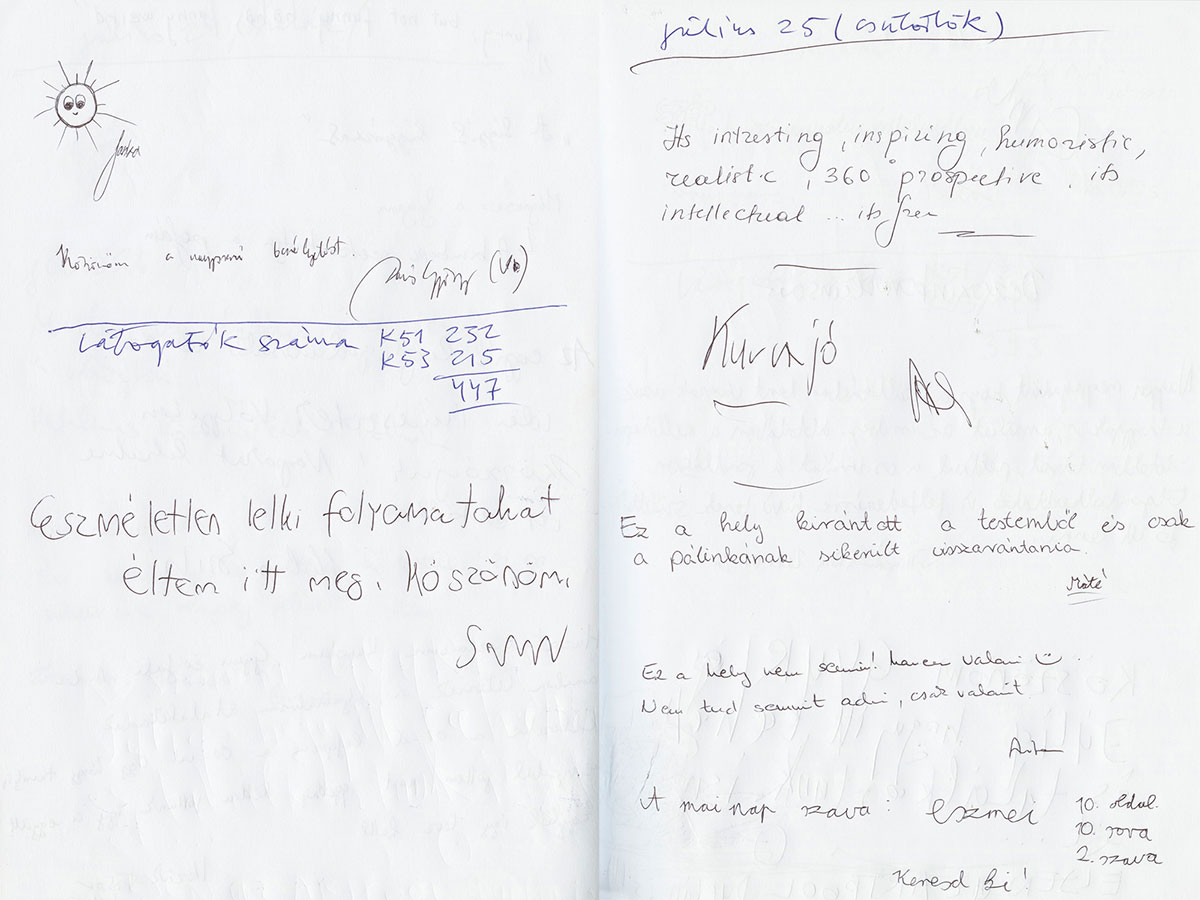 Köszönöm a nagyszerű beszélgetést.
Látogatók száma K51 232
K53 215
447
Eszméletlen lelki folyamatokat
éltem itt meg. Köszönöm.
július 25 (csütörtök)
Its intresting, inspiring, humoristic,
realistic, 360° prospective, its
intellectual ... its free
Kurva jó
Ez a hely kirántott a testemből és csak
a pálinkának sikerült visszarántania.
Máté
Ez a hely nem semmi! hanem valami
Nem tud semmit adni, csak valamit
A mai nap szava: eszmei
10. oldal.
10. sora
2. szava
Keresd ki!